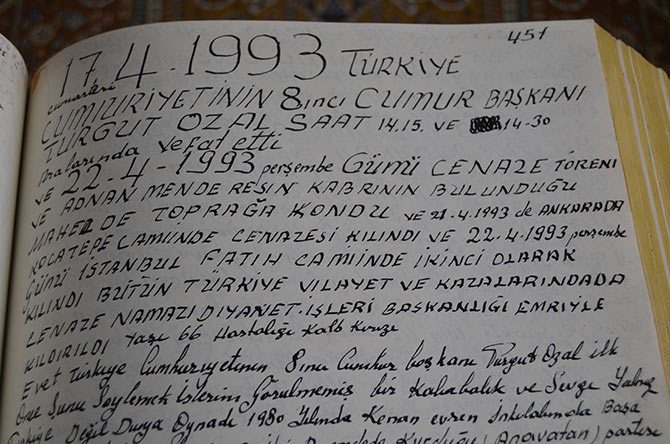 451
17.4-1993 TÜRKİYE
cumarteri
CUMHURİYETİNİN 8ıncı CUMUR BAŞKANI
TURGUT ÖZAL SAAT 14.15. VE 14-30
Aralarında vefat etti
VE 22-4-1993 perşembe Günü CENAZE TÖRENİ
VE ADNAN MENDERESİN KABRİNIN BULUNDUĞU
MAHELDE TOPRAĞA KONDU VE 21.4.1993 de ANKARADA
KOCATEPE CAMİNDE CENAZESİ KILINDI VE 22.4.1993 perşembe
Günü İSTANBUL FATİH CAMİNDE İKİNCİ OLARAK
KILINDI BÜTÜN TÜRKİYE VİLAYET VE KAZALARINDADA
CENAZE NAMAZI DİYANET-İŞLERİ BAŞKANLIĞI EMRİYLE
KILDIRILDI Yaşı 66 Hastalığı Kalb Krıze
Evet Türkiye Cumhuriyetinin 8ıncı Cumhur başkanı Turgut Özal ilk
Önce Şunu Söylemek İsterim Görülmemiş bir Kalabalık ve Sevgi Yalnız
Türkiye Değil Dunya Oynadı 1980 Yılında Kenan evren İnkılabında Başa
Kurduğu (Anavatan) partisi